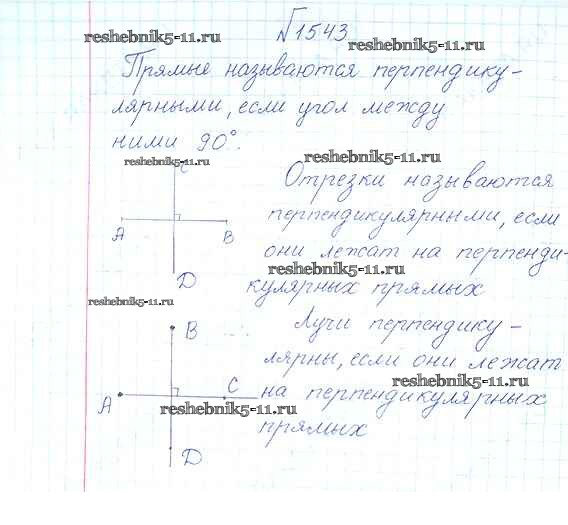 №1543
reshebnik5-11.ru
reshebnik5-11.ru
Прямые называются перпендику-
лярными, если угол между
ними 90°.
reshebnik5-11.ru
reshebnik5-11.ru
C
A
B
D
Отрезки называются
перпендикулярными, если
они лежат на перпенди-
reshebnik5-11.ru
кулярных прямых
reshebnik5-11.ru
B
A
C
D
reshebnik5-11.ru
Лучи перпендику-
лярны, если они лежат
reshebnik5-11.ru
на перпендикулярных
прямых